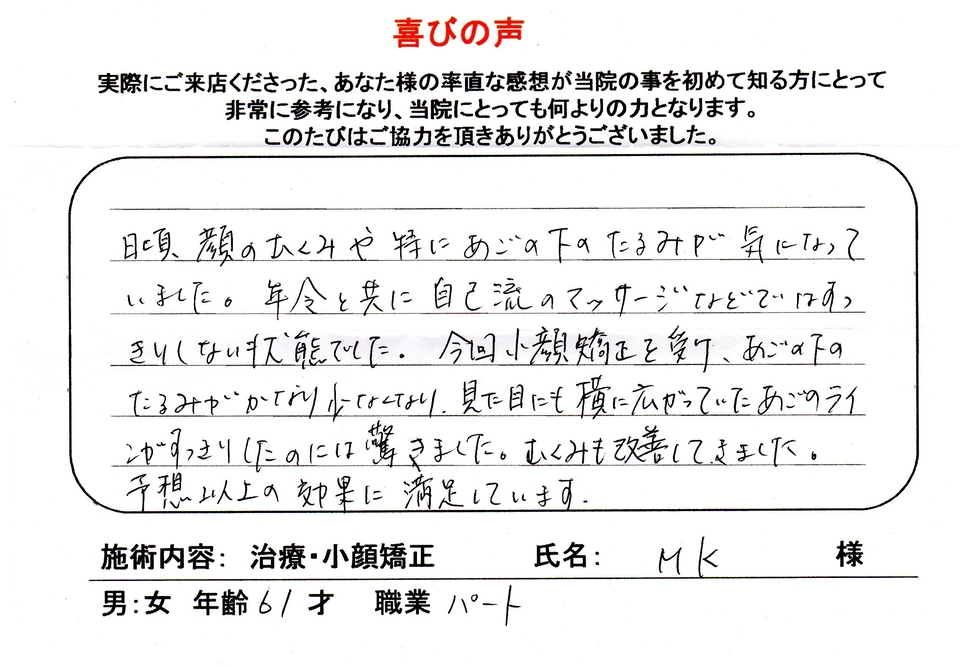 喜びの声
実際にご来店くださった、あなた様の率直な感想が当院の事を初めて知る方にとって
非常に参考になり、当院にとっても何よりの力となります。
このたびはご協力を頂きありがとうございました。
日頃 顔のむくみや 特にあごの下のたるみが 気になって
いました。 年令と共に 自己流のマッサージなどではすっ
きりしない状態でした。 今回小顔矯正を受け、あごの下の
たるみがかなり少なくなり、見た目にも横に広がっていたあごのライ
ンがすっきりしたのには驚きました。むくみも改善してきました。
予想以上の効果に満足しています。
施術内容： 治療・小顔矯正 氏名： MK 様
男：女 年齢 61 才 職業 パート